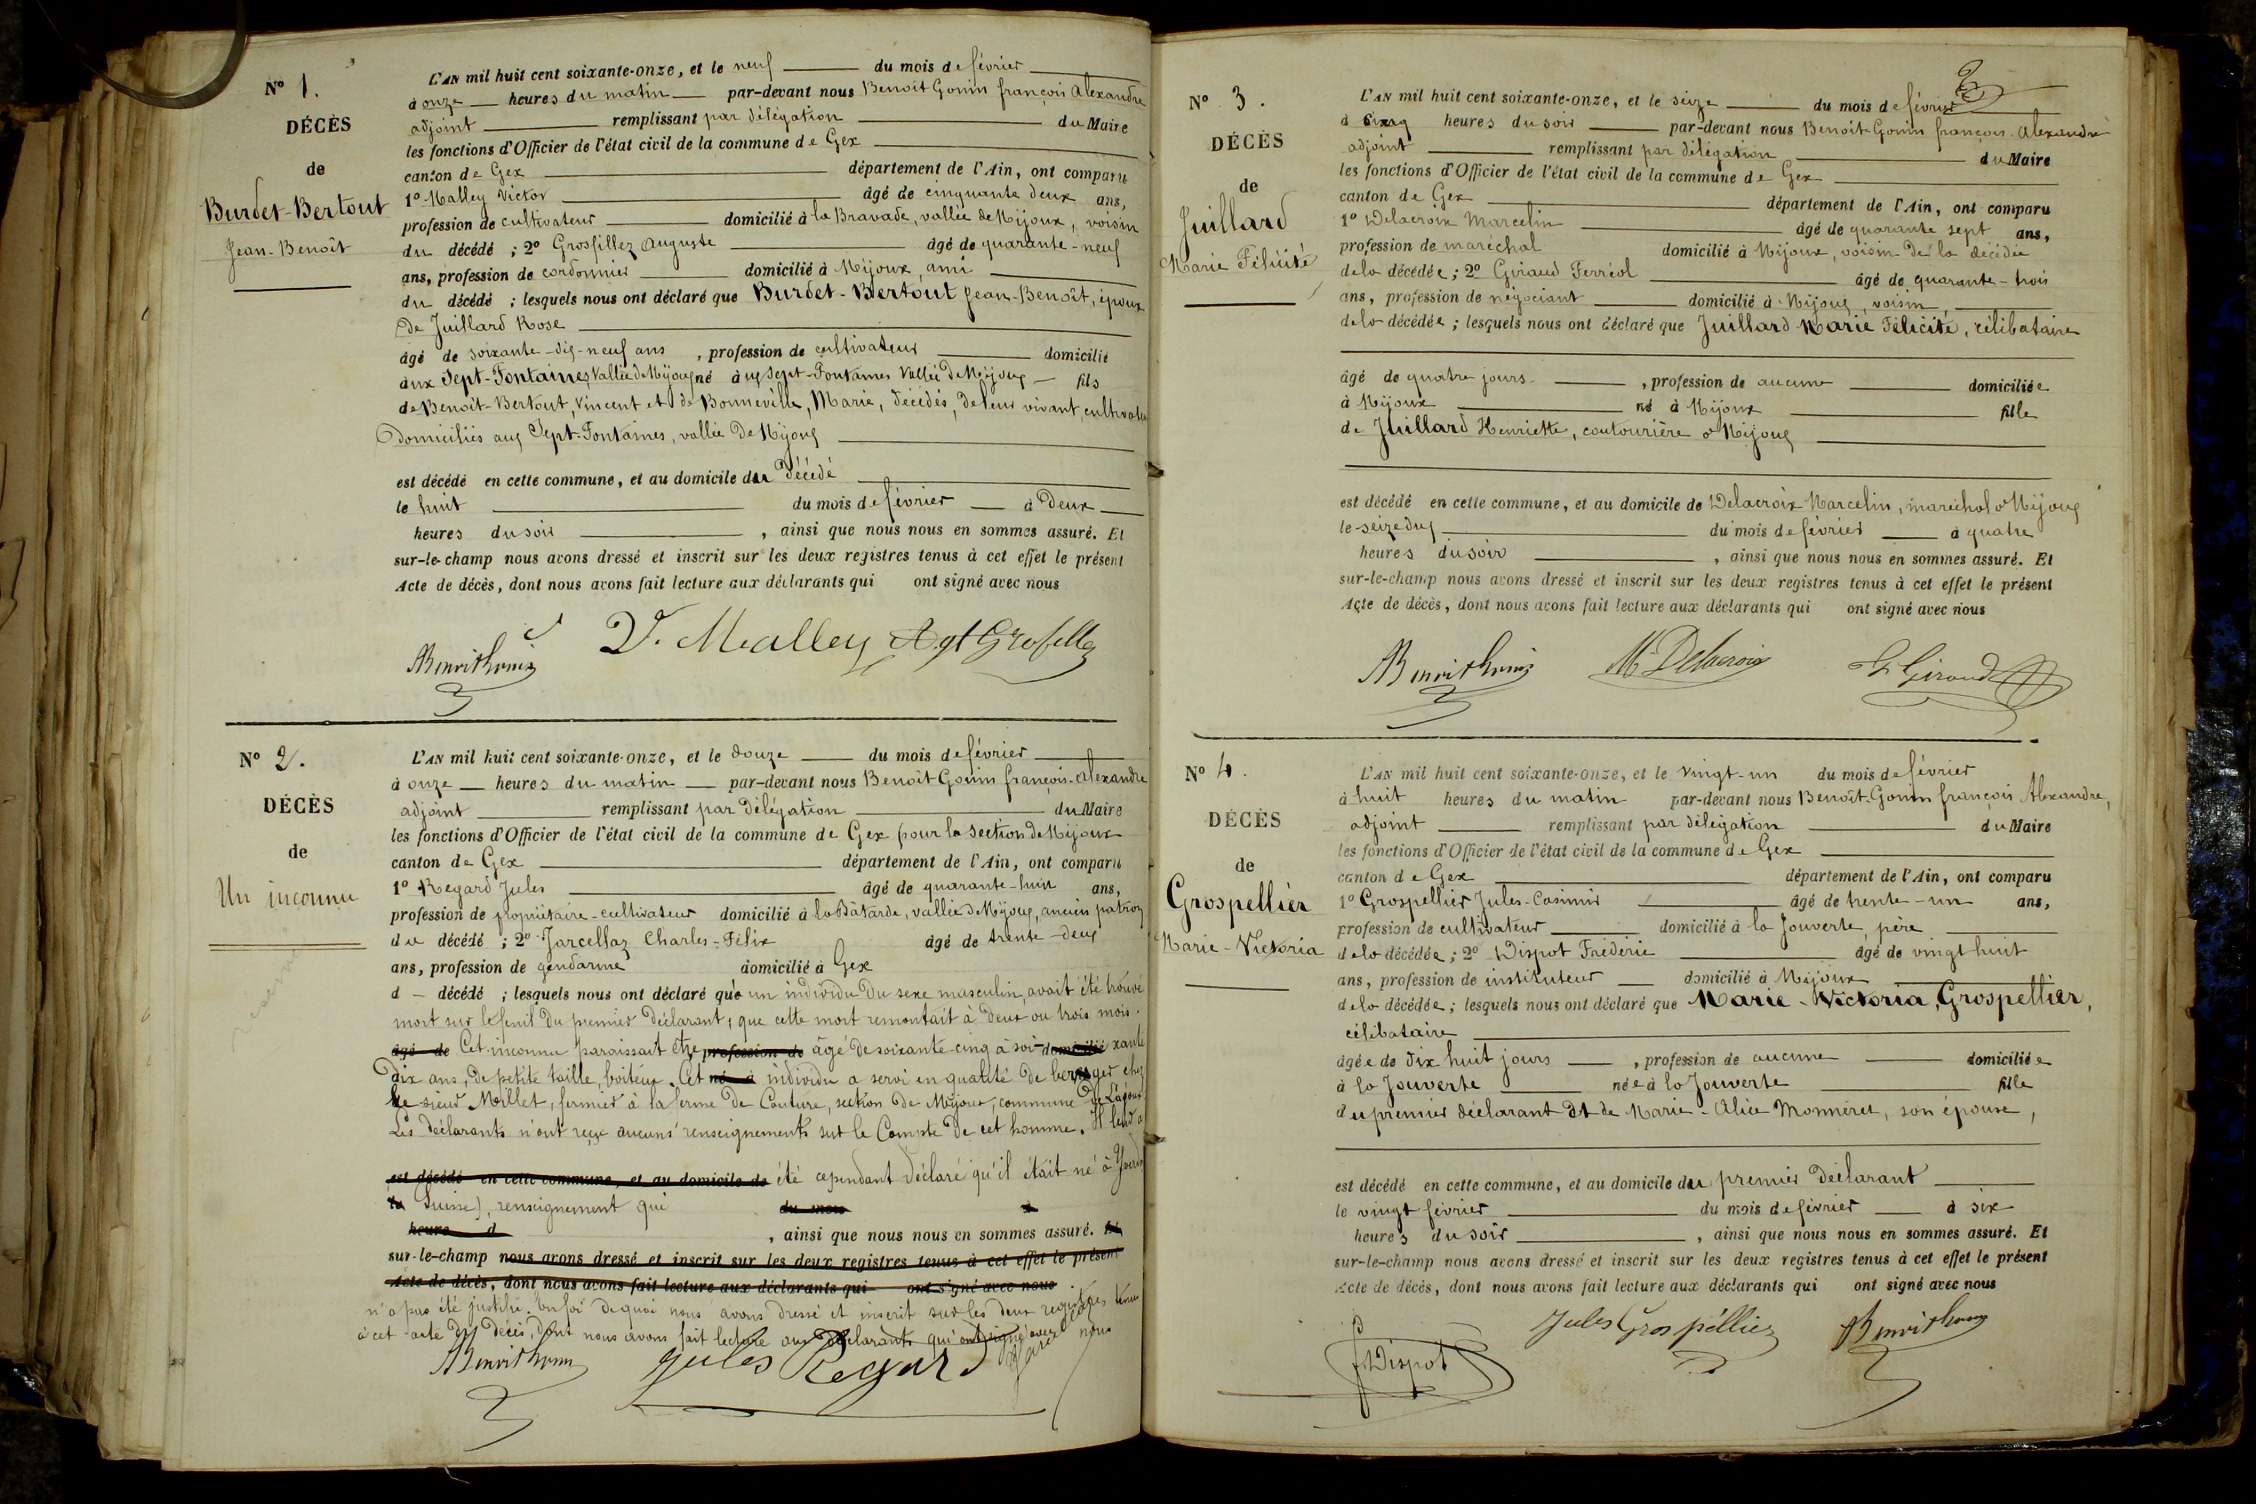 N° 1.
DÉCÈS
de
Burdet-Bertout
Jean-Benoît
L'AN mil huit cent soixante-onze, et le neuf du mois de février
à onze heures du matin par-devant nous Benoît Gonin françois Alexandre
adjoint remplissant par délégation du Maire
les fonctions d'Officier de l'état civil de la commune de Gex
canton de Gex département de l'Ain, ont comparu
1° Malley Victor âgé de cinquante deux ans,
profession de cultivateur domicilié à la Bravade, vallée de Mijoux, voisin
du décédé ; 2° Grosfillez Auguste âgé de quarante-neuf
ans, profession de cordonnier domicilié à Mijoux, ami
du décédé ; lesquels nous ont déclaré que Burdet-Bertout Jean-Benoît, époux
de Juillard Rose
âgé de soixante-dix-neuf ans , profession de cultivateur domicilié
aux Sept-Fontaines Vallée de Mijoux né aux Sept-Fontaines Vallée de Mijoux fils
de Benoît-Bertout, Vincent et de Bonneville, Marie, décédés, de leur vivant, cultivateurs
domiciliés aux Sept-Fontaines, vallée de Mijoux
est décédé en cette commune, et au domicile du décédé
le huit du mois de février à deux
heures du soir , ainsi que nous nous en sommes assuré. Et
sur-le-champ nous avons dressé et inscrit sur les deux registres tenus à cet effet le présent
Acte de décès, dont nous avons fait lecture aux déclarants qui ont signé avec nous
V. Malley Agt Grosfillez
N° 2.
DÉCÈS
de
Un inconnu
L'AN mil huit cent soixante-onze, et le douze du mois de février
à onze heures du matin par-devant nous Benoît Gonin françois-Alexandre
adjoint remplissant par délégation du Maire
les fonctions d'Officier de l'état civil de la commune de Gex pour la section de Mijoux
canton de Gex département de l'Ain, ont comparu
1° Regard Jules âgé de quarante-huit ans,
profession de propriétaire-cultivateur domicilié à la Bâtarde, vallée de Mijoux, ancien patron
du décédé ; 2° Jarcellaz Charles-Félix âgé de trente-deux
ans, profession de gendarme domicilié à Gex
d décédé ; lesquels nous ont déclaré que un individu du sexe masculin, avait été trouvé
mort sur le fenil du premier déclarant ; que cette mort remontait à deux ou trois mois.
âgé de Cet inconnu paraissait être profession de âgé de soixante cinq à soi- domicilié xante
dix ans, de petite taille, boiteux. Cet né à individu a servi en qualité de berger chez
le sieur Millet, fermier à la ferme de Couture, section de Mijoux, commune de
Les déclarants n'ont reçu aucuns renseignements sur le Compte de cet homme. Il leur a
est décédé en cette commune, et au domicile de été cependant déclaré qu'il était né à
Suisse), renseignement qui du mois à
heure d , ainsi que nous nous en sommes assuré. Et
sur-le-champ nous avons dressé et inscrit sur les deux registres tenus à cet effet le présent
Acte de décès, dont nous avons fait lecture aux déclarants qui ont signé avec nous
n'a pas été justifié. En foi de quoi nous avons dressé et inscrit sur les deux registres tenus
à cet acte de décès, dont nous avons fait lecture aux déclarants qui ont signé avec nous
Jules Regard
N° 3.
DÉCÈS
de
Juillard
Marie Félicité
L'AN mil huit cent soixante-onze, et le seize du mois de février
à cinq heures du soir par-devant nous Benoît Gonin françois Alexandre
adjoint remplissant par délégation du Maire
les fonctions d'Officier de l'état civil de la commune de Gex
canton de Gex département de l'Ain, ont comparu
1° Delacroix Marcelin âgé de quarante sept ans,
profession de maréchal domicilié à Mijoux, voisin de la décédée
de la décédée ; 2° Giraud Ferréol âgé de quarante-trois
ans, profession de négociant domicilié à Mijoux, voisin,
de la décédée ; lesquels nous ont déclaré que Juillard Marie Félicité, célibataire
âgé de quatre jours , profession de aucune domiciliée
à Mijoux né à Mijoux fille
de Juillard Henriette, couturière à Mijoux
est décédé en cette commune, et au domicile de Delacroix Marcelin, maréchal à Mijoux
le seize du mois de février à quatre
heures du soir , ainsi que nous nous en sommes assuré. Et
sur-le-champ nous avons dressé et inscrit sur les deux registres tenus à cet effet le présent
Acte de décès, dont nous avons fait lecture aux déclarants qui ont signé avec nous
M Delacroix F Giraud
N° 4.
DÉCÈS
de
Grospellier
Marie-Victoria
L'AN mil huit cent soixante-onze, et le vingt-un du mois de février
à huit heures du matin par-devant nous Benoît-Gonin françois Alexandre,
adjoint remplissant par délégation du Maire
les fonctions d'Officier de l'état civil de la commune de Gex
canton de Gex département de l'Ain, ont comparu
1° Grospellier Jules-Casimir âgé de trente-un ans,
profession de cultivateur domicilié à la Jouverte, père
de la décédée ; 2° Dispot Frédéric âgé de vingt huit
ans, profession de instituteur domicilié à Mijoux
de la décédée ; lesquels nous ont déclaré que Marie-Victoria, Grospellier,
célibataire
âgée de dix huit jours , profession de aucune domiciliée
à la Jouverte née à la Jouverte fille
du premier déclarant et de Marie-Alice Monneret, son épouse,
est décédé en cette commune, et au domicile du premier déclarant
le vingt février du mois de février à six
heures du soir , ainsi que nous nous en sommes assuré. Et
sur-le-champ nous avons dressé et inscrit sur les deux registres tenus à cet effet le présent
Acte de décès, dont nous avons fait lecture aux déclarants qui ont signé avec nous
Jules Grospellier
F Dispot